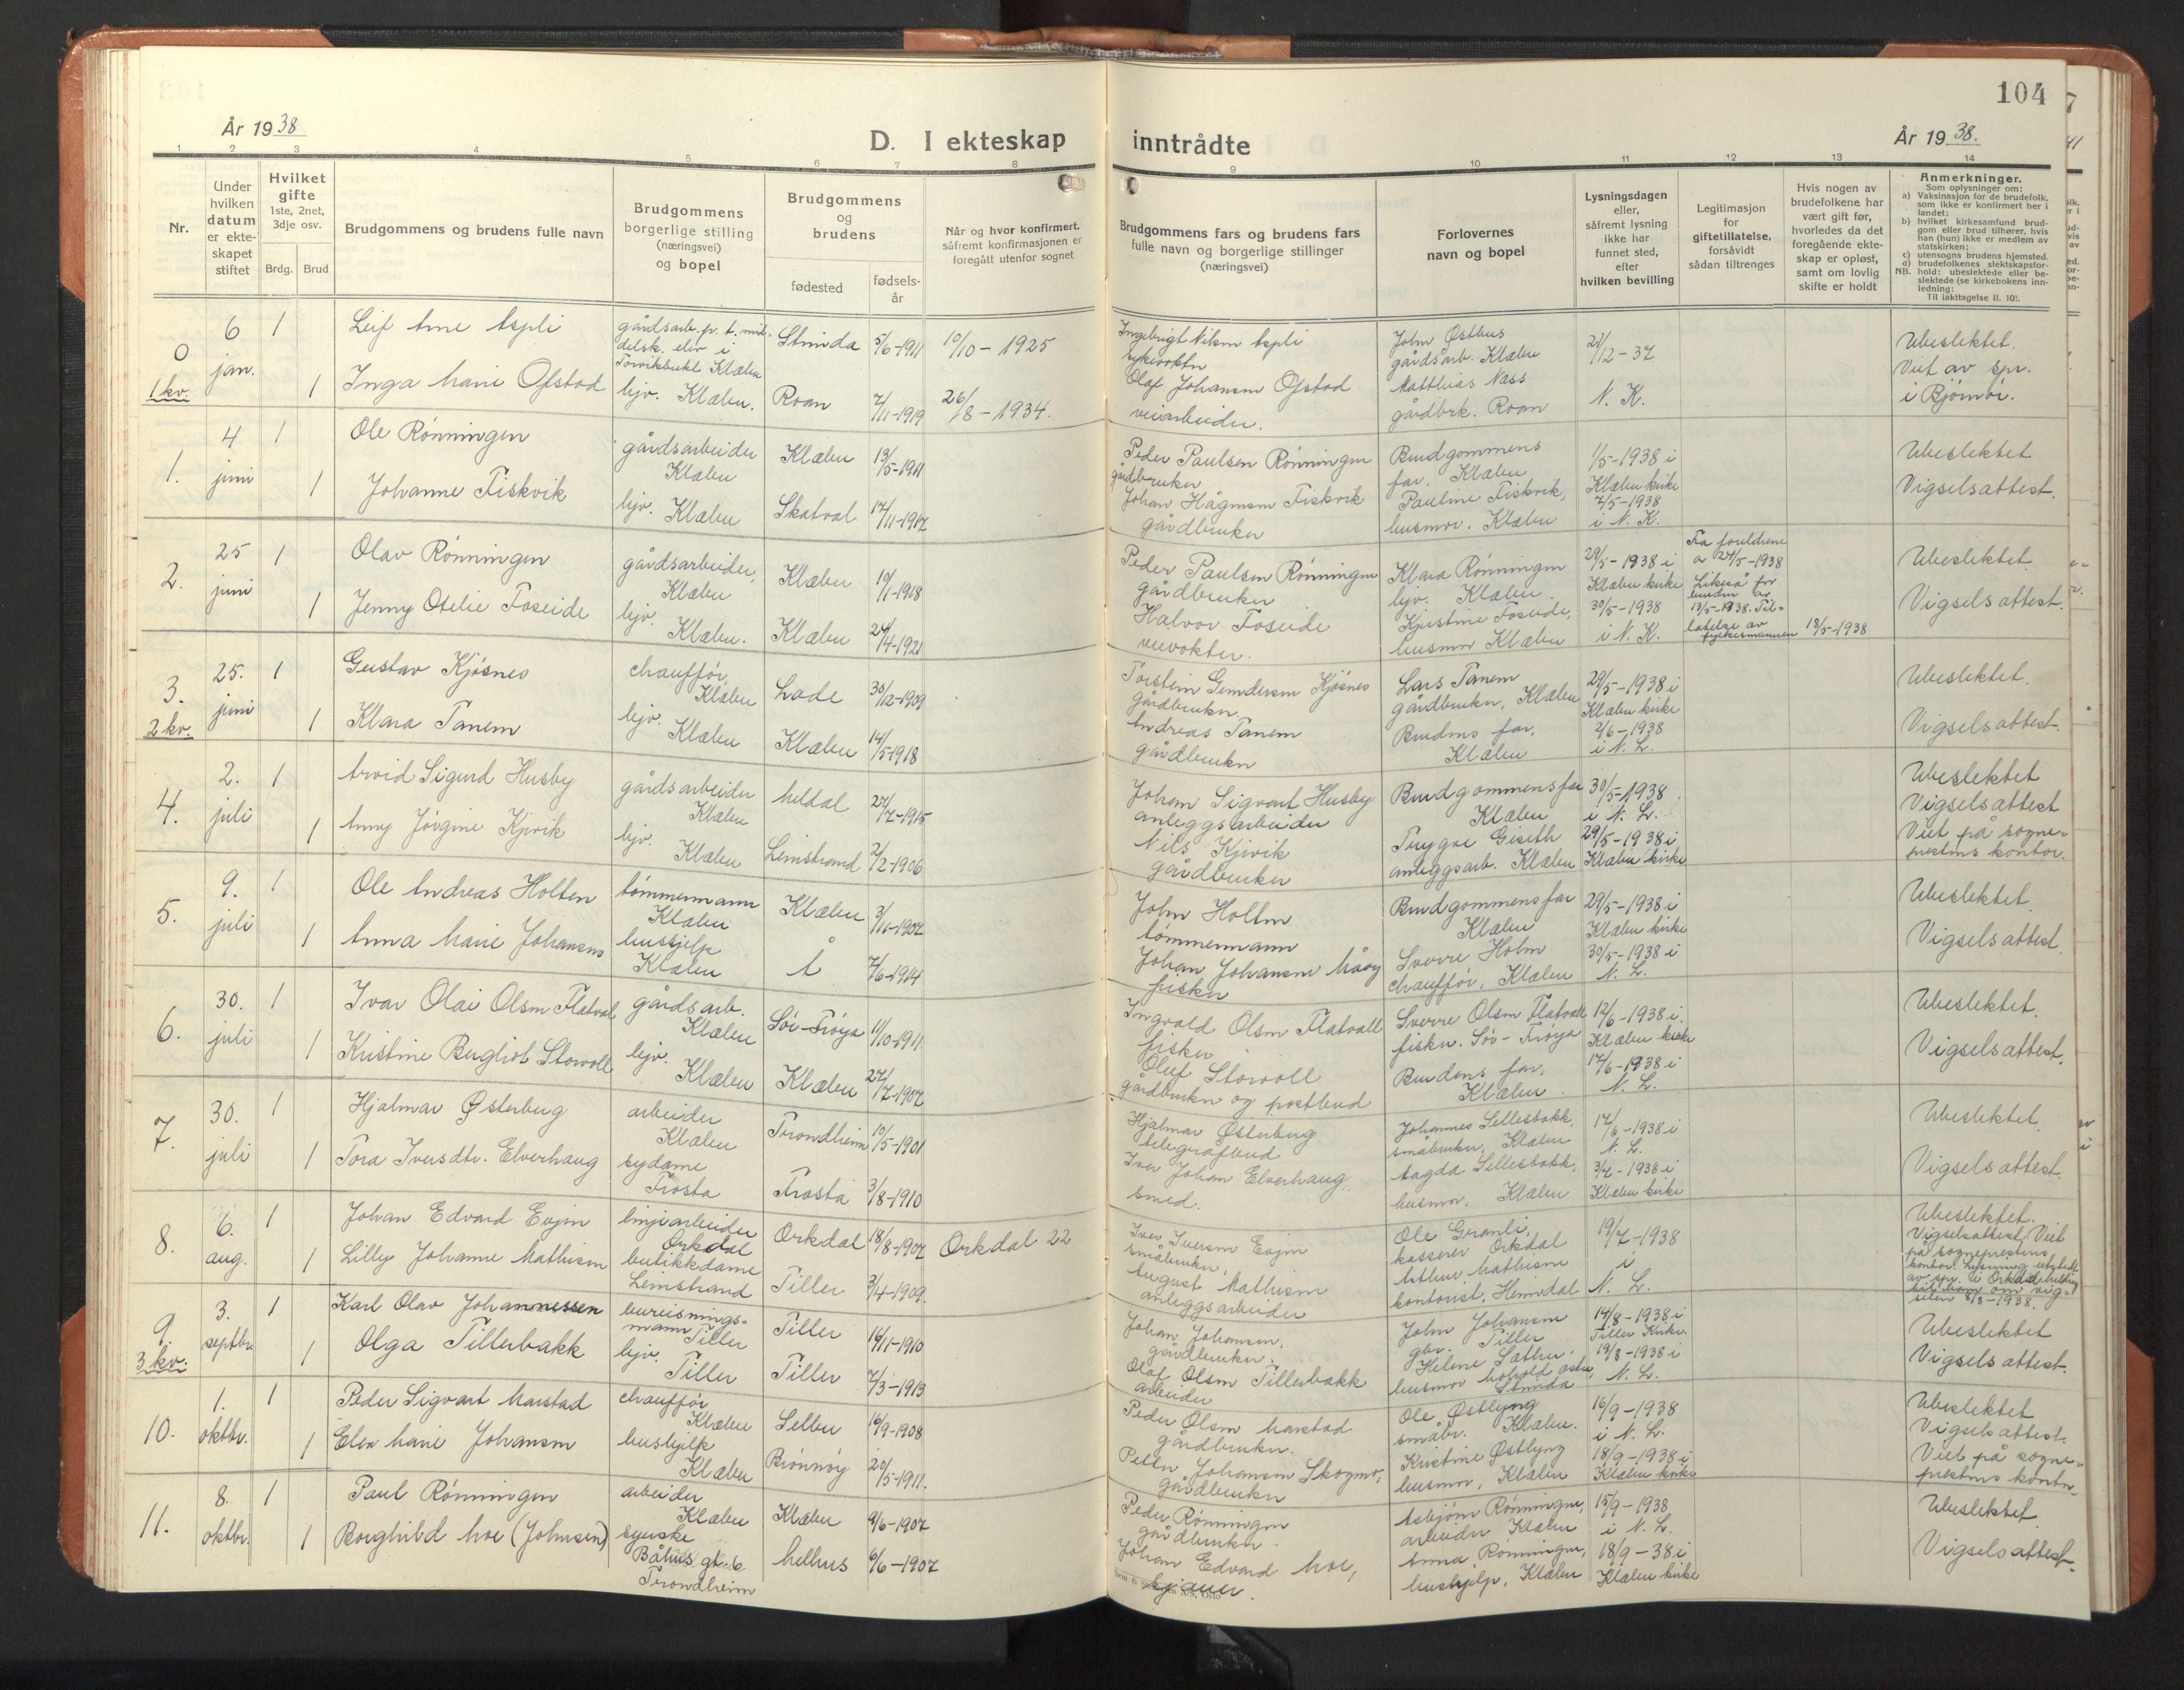 104
År 1938
D. I ekteskap inntrådte
År 1938.
1 2 3 4 5 6 7 8 9 10 11 12 13 14
Nr.
Under hvilken datum er ekteskapet stiftet
Hvilket gifte
1ste, 2net, 3dje osv.
Brdg. Brud
Brudgommens og brudens fulle navn
Brudgommens borgerlige stilling (næringsvei) og bopel
Brudgommens og brudens
fødested
fødselsår
Når og hvor konfirmert, såfremt konfirmasjonen er foregått utenfor sognet
Brudgommens fars og brudens fars fulle navn og borgerlige stillinger (næringsvei)
Forlovernes navn og bopel
Lysningsdagen eller, såfremt lysning ikke har funnet sted, efter hvilken bevilling
Legitimasjon for giftetillatelse, forsåvidt sådan tiltrenges
Hvis nogen av brudefolkene har vært gift før, hvorledes da det foregående ekteskap er opløst, samt om lovlig skifte er holdt
Anmerkninger.
Som oplysninger om:
a) Vaksinasjon for de brudefolk, som ikke er konfirmert her i landet;
b) hvilket kirkesamfund brudgom eller brud tilhører, hvis han (hun) ikke er medlem av statskirken;
c) utensogns brudens hjemsted.
d) brudefolkenes slektskapsforhold: ubeslektede eller beslektede (se kirkebokens innledning:
NB. Til iakttagelse II. 10).
0
1 kv.
6 jan.
1
Leif Arne Aspli
Stinda
5/6-1911
10/10-1925
Ingebrigt Nilsen Aspli
John Østhus
gårdsarb. Klæbu
21/12-37
Ubeslektet.
Viet av spr.
i Bjørnør.
1
Inga Marie Ofstad
hjv. Klæbu.
Roan
7/11-1919
26/8-1934.
Olaf Johansen Ofstad
veiarbeider.
Matthias Næss
gårdbrk. Roan
N. K.
1.
4 juni
1
Ole Rønningen
gårdsarbeider
Klæbu
Klæbu
13/5-1911
Peder Paulsen Rønningen
gårdbruker
Brudgommens
far, Klæbu
1/5-1938 i
Klæbu kirke
Ubeslektet
1
Johanne Fiskvik
hjv. Klæbu
Skatval
17/11-1917
Johan Hågensen Fiskvik
gårdbruker
Pauline Fiskvik,
husmor, Klæbu
7/5-1938
i N. K.
Vigselsattest.
2.
25 juni
1
Olav Rønningen
gårdsarbeider,
Klæbu
Klæbu
10/1-1918
Peder Paulsen Rønningen
gårdbruker
Klara Rønningen
hjv. Klæbu.
29/5-1938 i
Klæbu kirke
Fra foreldrene
av 27/5-1938
Likeså for
bruden av
13/5-1938. Til-
latelse av
fylkesmannen 18/5-1938
Ubeslektet
1
Jenny Otelie Foseide
hjv.
Klæbu.
Klæbu
24/4-1921
Halvor Foseide
veivokter.
Kjerstine Foseide,
husmor Klæbu
30/5-1938
i N. K.
Vigselsattest.
3.
2 kv.
25. juni
1
Gustav Kjøsnes
chauffør,
Klæbu
Lade
30/12-1909
Torstein Gundersen Kjøsnes
gårdbruker.
Lars Tanem
gårdbruker, Klæbu
29/5-1938 i
Klæbu kirke
Ubeslektet.
1
Klara Tanem
hjv.
Klæbu
Klæbu
14/5-1918
Andreas Tanem
gårdbruker
Brudens far,
Klæbu
2/6-1938
i N. L.
Vigselsattest.
4.
2. juli
1
Arvid Sigurd Husby
gårdsarbeider
Klæbu
Meldal
27/7-1915
Johan Sigvart Husby
anleggsarbeider
Brudgommens far
Klæbu
30/5-1938
i N. L.
Ubeslektet
Vigselsattest
1
Anny Jørgine Kjevik
hjv.
Klæbu
Leinstrand
2/2-1906
Nils Kjevik
gårdbruker
Trygve Giseth
anleggsarb. Klæbu
29/5-1938 i
Klæbu kirke
Viet på sogne-
prestens kontor.
5.
9. juli
1
Ole Andreas Holten
tømmermann
Klæbu
Klæbu
3/11-1907
John Holten
tømmermann
Brudgommens far
Klæbu
29/5-1938 i
Klæbu kirke
Ubeslektet.
1
Anna Marie Johansens
hushjelp
Klæbu
Å
7/6-1914
Johan Johansen Måøy
fisker
Sverre Holm
chauffør, Klæbu
30/5-1938 i
N. L.
Vigselsattest
6.
30. juli
1
Ivar Olai Olsen Flatval
gårdsarb.
Klæbu
Sør-Frøya
11/10-1911
Ingvald Olsen Flatvall
fisker
Sverre Olsen Flatvall
fisker. Sør-Frøya
12/6-1938 i.
Klæbu kirke
Ubeslektet.
1
Kristine Bergliot Storvoll
hjv.
Klæbu
Klæbu
27/7-1907
Oluf Storvoll
gårdbruker og postbud
Brudens far,
Klæbu
17/6-1938 i
N. L.
Vigselsattest.
7.
30. juli
1
Hjalmar Østerberg
arbeider
Klæbu
Trondheim
10/5-1901
Hjalmar Østerberg
telegrafbud
Johannes Sellesbakk,
småbruker, Klæbu
17/6-1938 i
N. L.
Ubeslektet.
1
Tora Iversdtr. Elverhaug
sydame
Frosta
Frosta
3/8-1910
Iver Johan Elverhaug.
smed.
Magda Sellesbakk,
husmor, Klæbu
3/7-1938 i
Klæbu kirke
Vigselsattest.
8.
6. aug.
1
Johan Edvard Evjen
linjearbeider
Orkdal
Orkdal
18/8-1907
Orkdal 22
Iver Iversen Evjen
småbruker,
Ole Gramli,
kasserer Orkdal
19/7-1938
i
N. L.
Ubeslektet.
Vigselsattest. Viet
på sogneprestens
1
Lilly Johanne Mathisen
butikkdame
Leinstrand
Tiller
3/4-1909.
August Mathisen
anleggsarbeider
Arthur Mathisen
kontorist, Heimdal
9.
3 kv.
3. septbr.
1
Karl Olav Johannessen
bureisnings-
mann Tiller
Tiller
16/11-1910
Johan Johansen,
gårdbruker.
John Johansen
gbr. Tiller
14/8-1938 i
Tiller Kirke.
Ubeslektet
1
Olga Tillerbakk
hjv.
Tiller
Tiller
7/3-1913
Olaf Olsen Tillerbakk
arbeider
Helene Sæther,
husmor
Strinda
19/8-1938 i
N. L.
Vigselsattest.
10.
1. oktbr.
1
Peder Sigvart Marstad
chauffør
Klæbu
Selbu
16/9-1908
Peder Olsen Marstad
gårdbruker.
Ole Østlyng
småbr. Klæbu.
16/9-1938
i N. L.
Ubeslektet
Vigselsattest.
1
Elen Marie Johansen
hushjelp
Klæbu
Brønnøy
20/5-1911.
Petter Johansen Skogmo,
gårdbruker
Kristine Østlyng
husmor, Klæbu
18/9-1938 i
Klæbu kirke
Viet på sogne-
prestens kontor
11.
8. oktbr.
1
Paul Rønningen
arbeider
Klæbu
Klæbu
9/6-1907
Peder Rønningen
gårdbruker.
Asbjørn Rønningen,
arbeider Klæbu
15/9-1938
i N. L.
Ubeslektet
1
Borghild Moe (Johnsen)
syerske
Båhus gt. 6
Trondheim
Melhus
6/6-1907
Johan Edvard Moe,
Anna Rønningen,
hushjelp, Klæbu
18/9-38 i
Klæbu kirke
Vigselsattest.